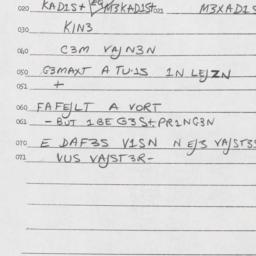 020 KAD1S+ M3KAD1S+021 M3XAD1S
030 K1N3
040 C3M VAJN3N
050 G3MAXT A TU-1S 1N LEJZN
051 +
060 FAFEJLT A VORT
061 - BUT 1BEG3S+PR1NG3N
070 E DAF3S V1SN N EJ3 VAJST3S
071 VUS VAJST3R-